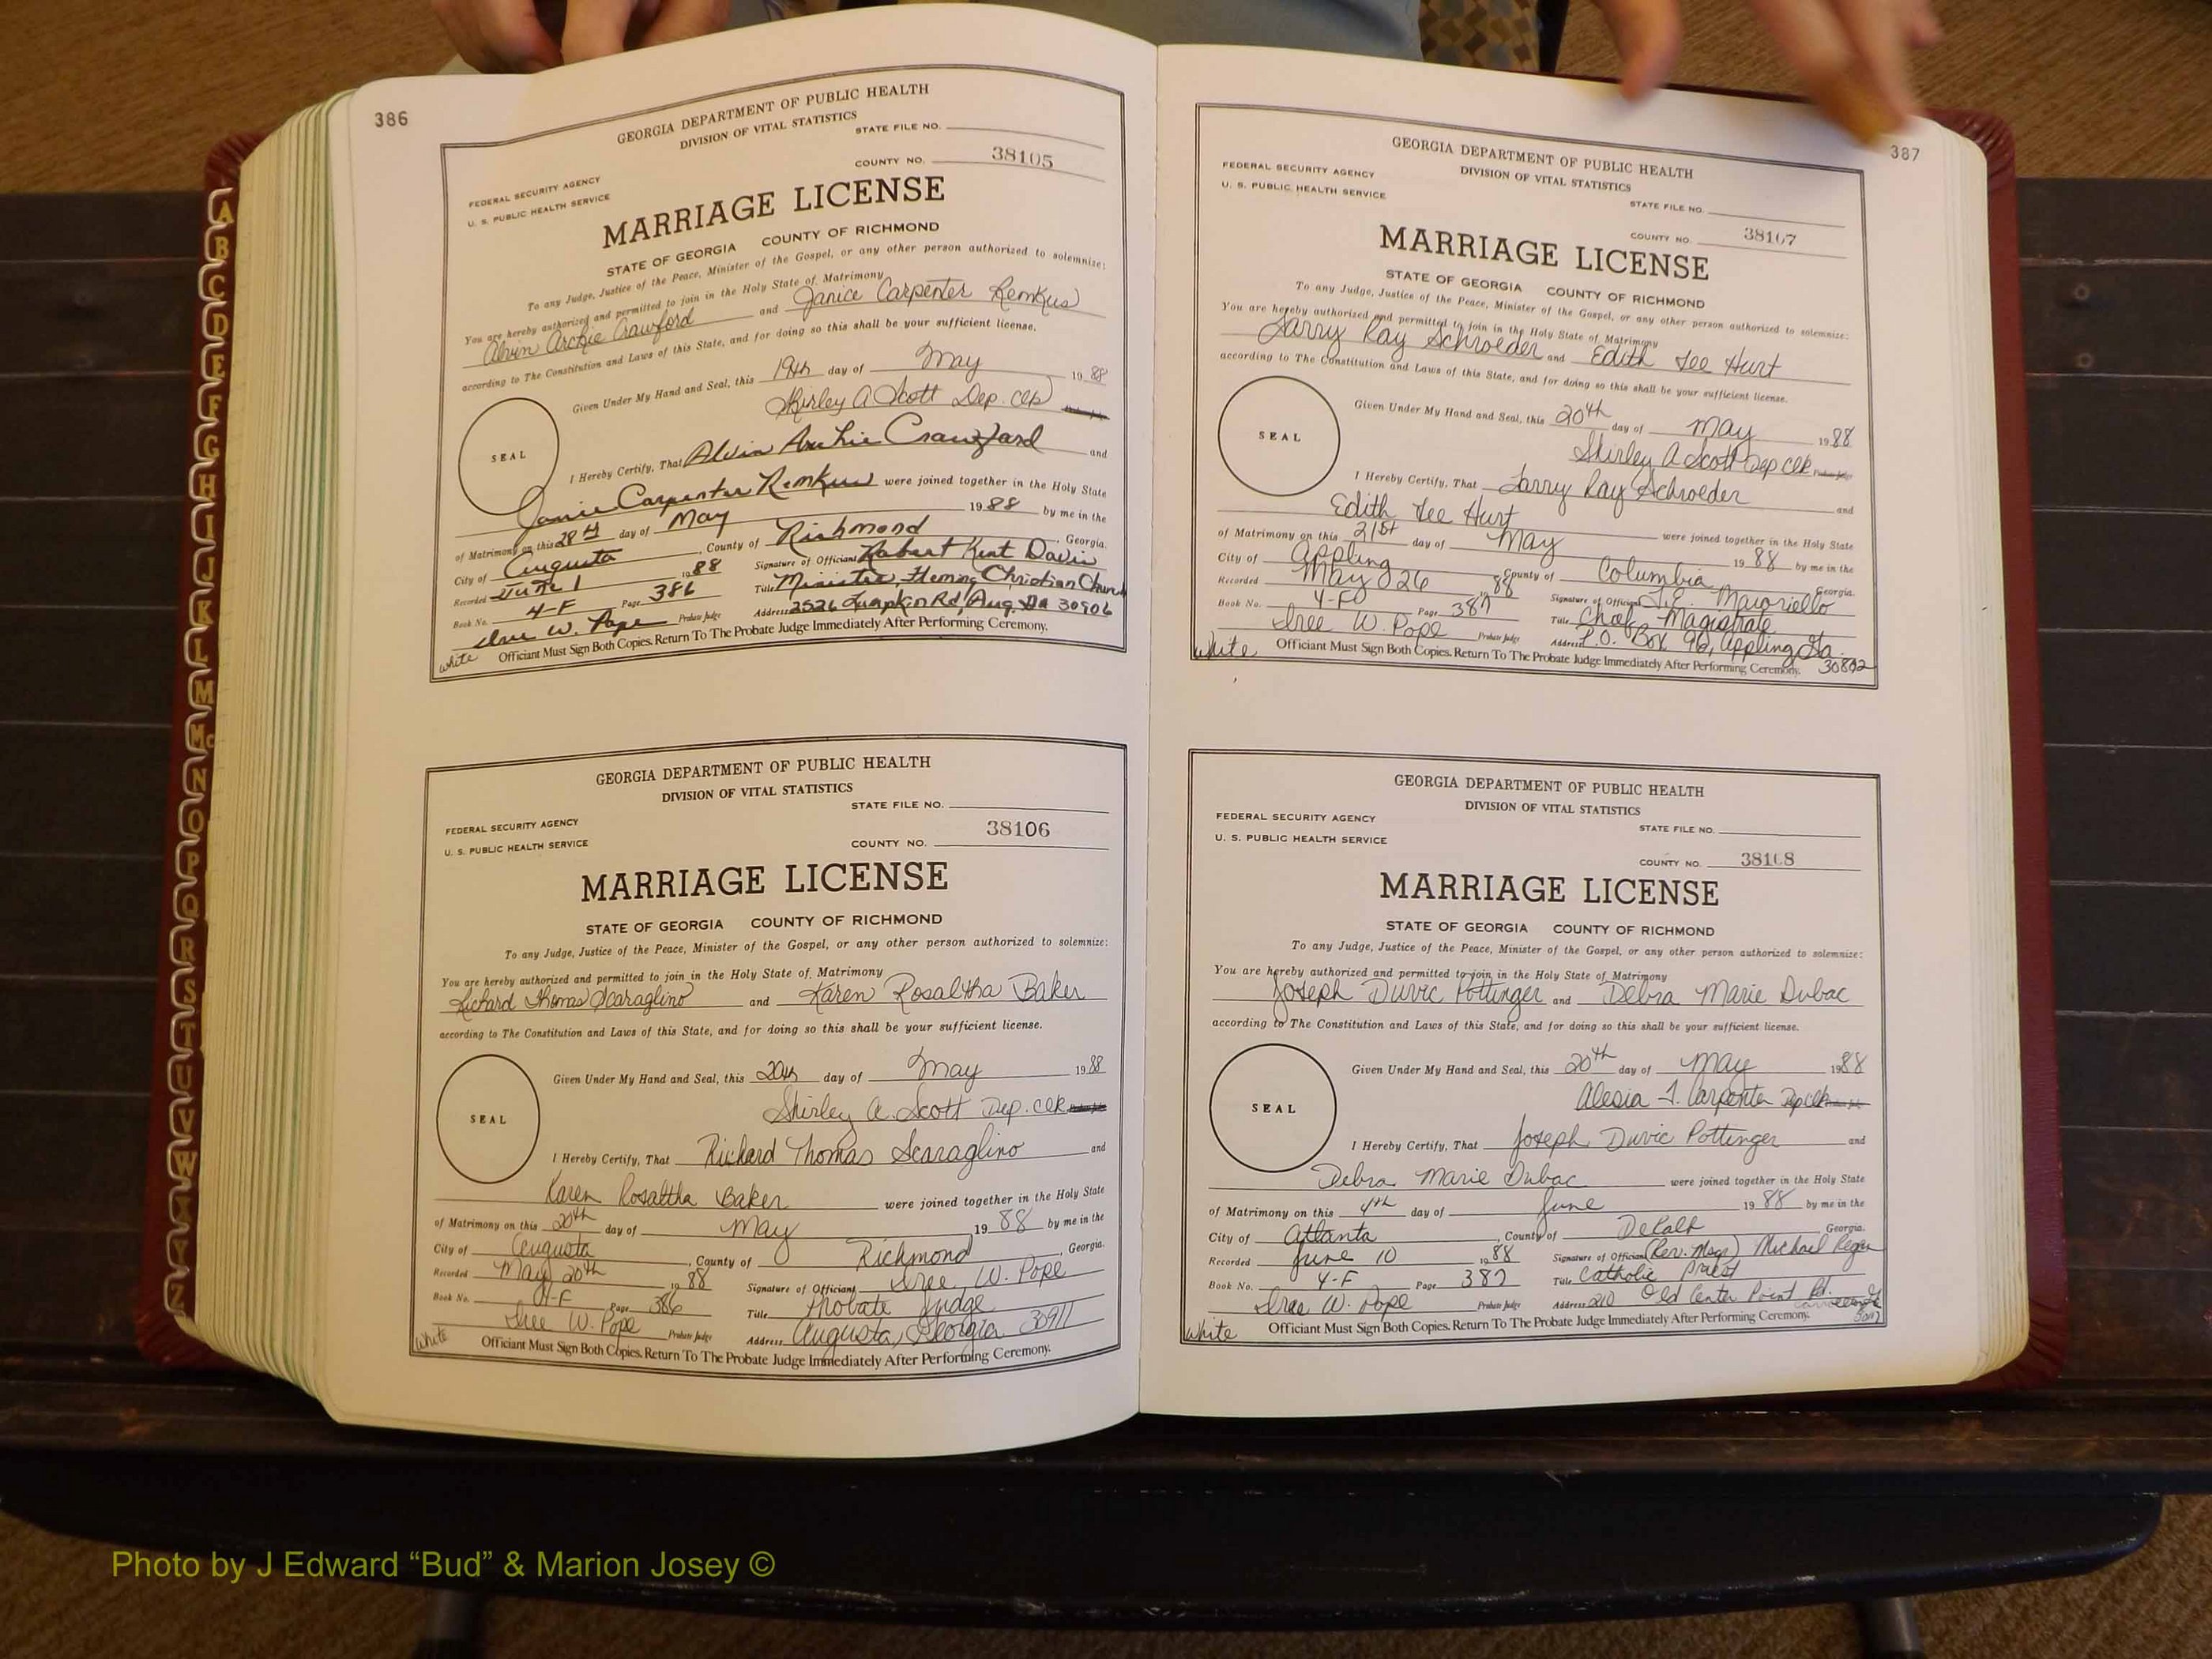 386
GEORGIA DEPARTMENT OF PUBLIC HEALTH
DIVISION OF VITAL STATISTICS
STATE FILE NO.
COUNTY NO. 38105
FEDERAL SECURITY AGENCY
U. S. PUBLIC HEALTH SERVICE
MARRIAGE LICENSE
STATE OF GEORGIA COUNTY OF RICHMOND
To any Judge, Justice of the Peace, Minister of the Gospel, or any other person authorized to solemnize:
You are hereby authorized and permitted to join in the Holy State of Matrimony
Alvin Archie Crawford and Janice Carpenter Remkus
according to The Constitution and Laws of this State, and for doing so this shall be your sufficient license.
Given Under My Hand and Seal, this 19th day of May 1988
Shirley A Scott Dep. Clk
SEAL
I Hereby Certify, That Alvin Archie Crawford and
Janice Carpenter Remkus were joined together in the Holy State
of Matrimony on this 28th day of May 1988 by me in the
City of Augusta, County of Richmond, Georgia.
Recorded June 1 1988 Signature of Official Robert Kent Davis
Book No. 4-F Page 386 Title Minister, Fleming Christian Church
W. Pope Probate Judge Address 2526 Lumpkin Rd, Aug. Ga 30906
white Officiant Must Sign Both Copies. Return To The Probate Judge Immediately After Performing Ceremony.
GEORGIA DEPARTMENT OF PUBLIC HEALTH
DIVISION OF VITAL STATISTICS
STATE FILE NO.
FEDERAL SECURITY AGENCY
U. S. PUBLIC HEALTH SERVICE
COUNTY NO. 38106
MARRIAGE LICENSE
STATE OF GEORGIA COUNTY OF RICHMOND
To any Judge, Justice of the Peace, Minister of the Gospel, or any other person authorized to solemnize:
You are hereby authorized and permitted to join in the Holy State of Matrimony
Richard Thomas Scaraglino and Karen Rosaltha Baker
according to The Constitution and Laws of this State, and for doing so this shall be your sufficient license.
Given Under My Hand and Seal, this 20th day of May 1988
Shirley A. Scott Dep. Clk
SEAL
I Hereby Certify, That Richard Thomas Scaraglino and
Karen Rosaltha Baker were joined together in the Holy State
of Matrimony on this 20th day of May 1988 by me in the
City of Augusta, County of Richmond, Georgia.
Recorded May 20th 1988 Signature of Official W. Pope
Book No. 4-F Page 386 Title Probate Judge
W. Pope Probate Judge Address Augusta, Georgia 30911
White Officiant Must Sign Both Copies. Return To The Probate Judge Immediately After Performing Ceremony.
387
GEORGIA DEPARTMENT OF PUBLIC HEALTH
DIVISION OF VITAL STATISTICS
FEDERAL SECURITY AGENCY
U. S. PUBLIC HEALTH SERVICE
STATE FILE NO.
COUNTY NO. 38107
MARRIAGE LICENSE
STATE OF GEORGIA COUNTY OF RICHMOND
To any Judge, Justice of the Peace, Minister of the Gospel, or any other person authorized to solemnize:
You are hereby authorized and permitted to join in the Holy State of Matrimony
Larry Ray Schroeder and Edith Lee Hurt
according to The Constitution and Laws of this State, and for doing so this shall be your sufficient license.
Given Under My Hand and Seal, this 20th day of May 1988
Shirley A Scott Dep Clk
SEAL
I Hereby Certify, That Larry Ray Schroeder and
Edith Lee Hurt were joined together in the Holy State
of Matrimony on this 21st day of May 1988 by me in the
City of Appling County of Columbia Georgia.
Recorded May 26 88 Signature of Official
Book No. 4-F Page 387 Title Chief Magistrate
W. Pope Probate Judge Address P.O. Box 96, Appling Ga. 30802
White Officiant Must Sign Both Copies. Return To The Probate Judge Immediately After Performing Ceremony.
GEORGIA DEPARTMENT OF PUBLIC HEALTH
DIVISION OF VITAL STATISTICS
FEDERAL SECURITY AGENCY
U. S. PUBLIC HEALTH SERVICE
STATE FILE NO.
COUNTY NO. 38108
MARRIAGE LICENSE
STATE OF GEORGIA COUNTY OF RICHMOND
To any Judge, Justice of the Peace, Minister of the Gospel, or any other person authorized to solemnize:
You are hereby authorized and permitted to join in the Holy State of Matrimony
Joseph Duvic Pottinger and Debra Marie Dubac
according to The Constitution and Laws of this State, and for doing so this shall be your sufficient license.
Given Under My Hand and Seal, this 20th day of May 1988
Alesia J. Carpenter Dep Clk
SEAL
I Hereby Certify, That Joseph Duvic Pottinger and
Debra Marie Dubac were joined together in the Holy State
of Matrimony on this 4th day of June 1988 by me in the
City of Atlanta, County of DeKalb Georgia.
Recorded June 10 1988 Signature of Official (Rev. Msgr) Michael Regan
Book No. 4-F Page 387 Title Catholic Priest
W. Pope Probate Judge Address 210 Old Center Point Rd.
White Officiant Must Sign Both Copies. Return To The Probate Judge Immediately After Performing Ceremony.
A
B
C
D
E
F
G
H
I
J
K
L
M
Mc
N
O
P
Q
R
S
T
U
V
W
X
Y
Z
Photo by J Edward “Bud” & Marion Josey ©